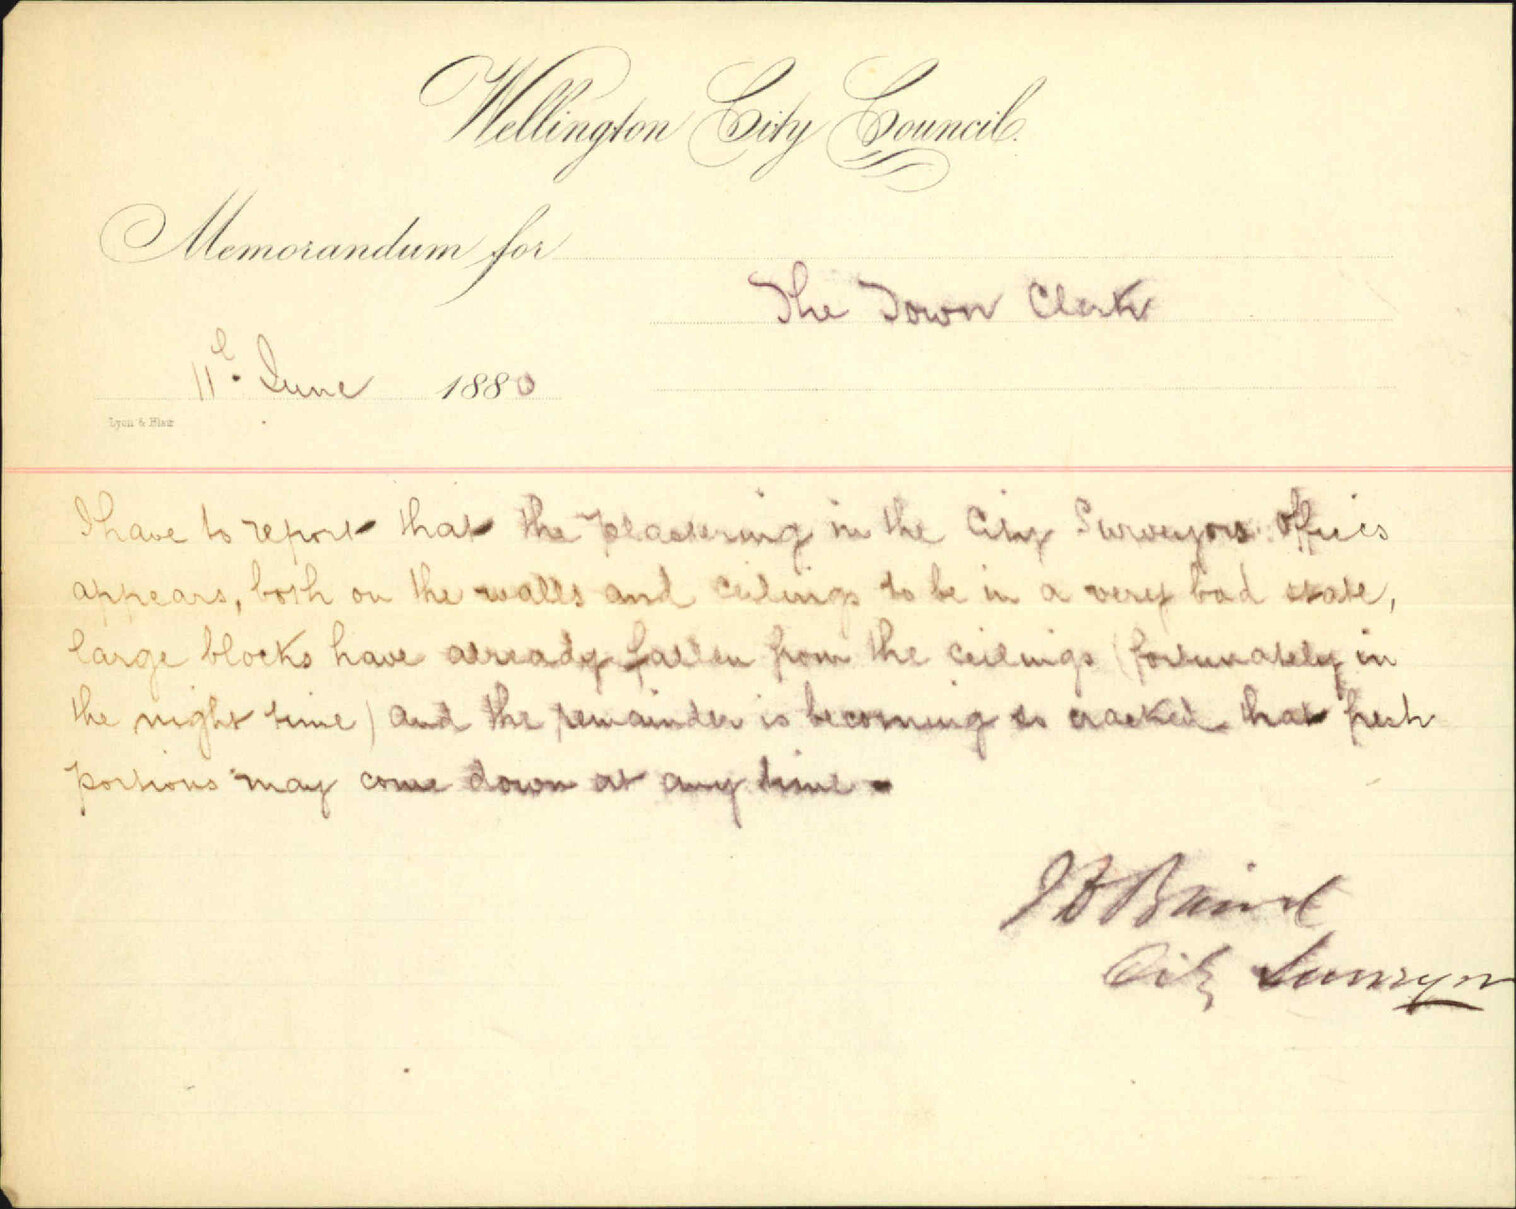 Wellington City Council.
Memorandum for
The Town Clerk
11th June 1880
Lyon & Blair
I have to report that the plastering in the City Surveyors Offices
appears, both on the walls and ceilings to be in a very bad state,
large blocks have already fallen from the ceilings (fortunately in
the night time) and the remainder is becoming so cracked that fresh
portions may come down at any time -
J D Baird
City Surveyor